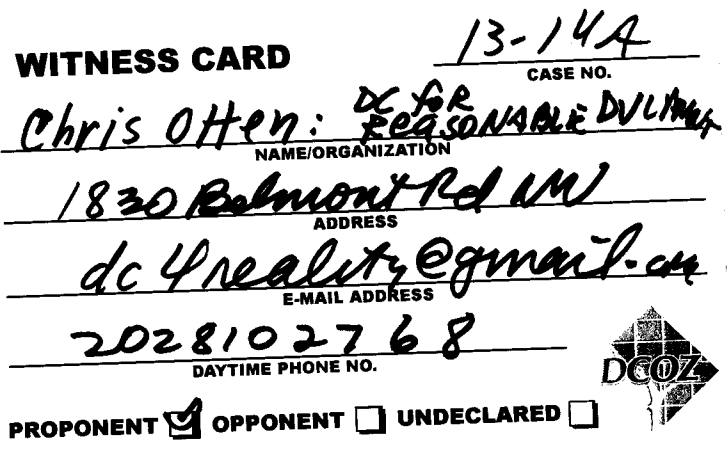 WITNESS CARD
13-14A
CASE NO.
Chris Otten: DC for
REASONABLE DVLPMNT
NAME/ORGANIZATION
1830 Belmont Rd NW
ADDRESS
dc4reality@gmail.com
E-MAIL ADDRESS
2028102768
DAYTIME PHONE NO.
DCOZ
PROPONENT ☑ OPPONENT ☐ UNDECLARED ☐